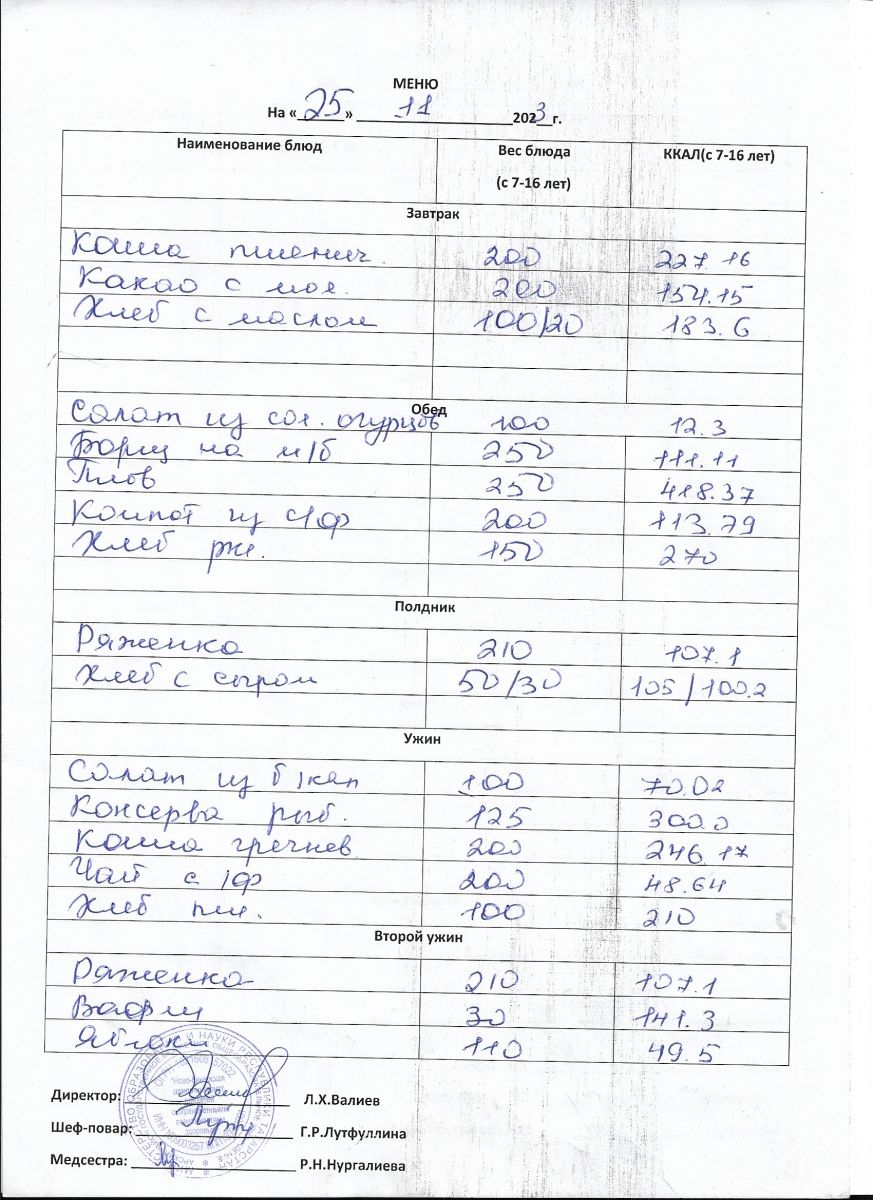 МЕНЮ
На «25» 11 2023 г.
Наименование блюд Вес блюда (с 7-16 лет) ККАЛ(с 7-16 лет)
Завтрак
Каша пшенич. 200 227.16
Какао с мол. 200 154.15
Хлеб с маслом 100/20 183.6
Обед
Салат из сол. огурцов 100 12.3
Борщ на м/б 250 111.11
Плов 250 418.37
Компот из с/ф 200 113.79
Хлеб рж. 150 270
Полдник
Ряженка 210 107.1
Хлеб с сыром 50/30 105/100.2
Ужин
Салат из б/кап 100 70.02
Консерва рыб. 125 300.0
Каша гречнев. 200 246.17
Чай с /ф 200 48.64
Хлеб пш. 100 210
Второй ужин
Ряженка 210 107.1
Вафли 30 141.3
Яблоки 110 49.5
Директор: Л.Х.Валиев
Шеф-повар: Г.Р.Лутфуллина
Медсестра: Р.Н.Нургалиева